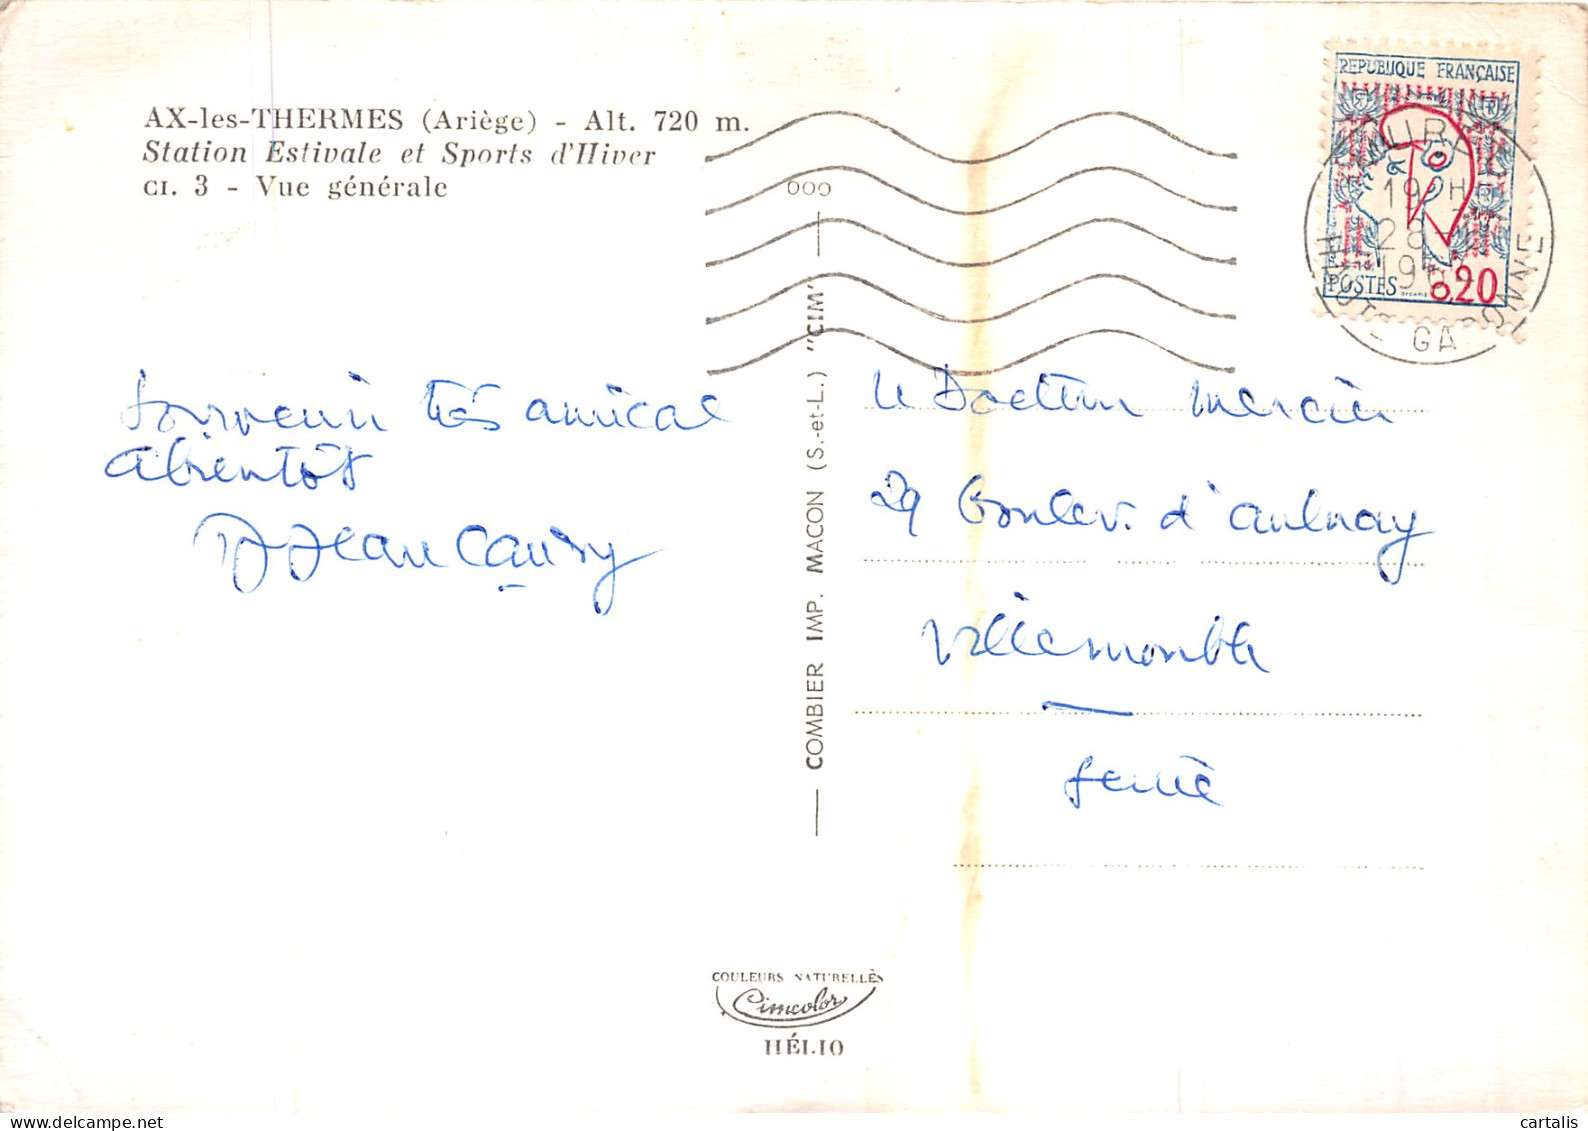 AX-les-THERMES (Ariège) - Alt. 720 m.
Station Estivale et Sports d'Hiver
CI. 3 - Vue générale
Souvenir très amical
abientôt
REPUBLIQUE FRANÇAISE
POSTES 0,20
19H
28
196
HAUTE GARONNE
COMBIER IMP. MACON (S.-et-L.) "CIM"
Le Docteur Mercier
29 Boulev. d'Aulnay
Villemomble
Seine
COULEURS NATURELLES
Cimcolor
HÉLIO
cartalis
www.delcampe.net